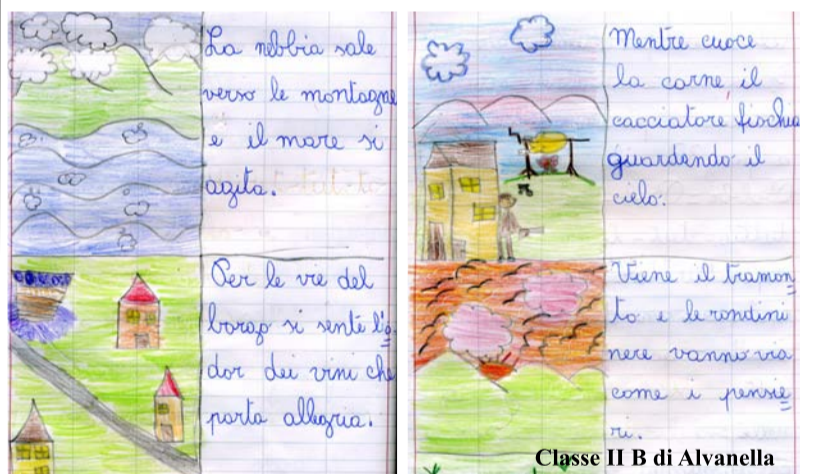 La nebbia sale
verso le montagne
e il mare si
agita.
Per le vie del
borgo si sente l'o
dor dei vini che
porta allegria.
Mentre cuoce
la carne, il
cacciatore fischia
guardando il
cielo.
Viene il tramon
to e le rondini
nere vanno via
come i pensie
ri.
Classe II B di Alvanella